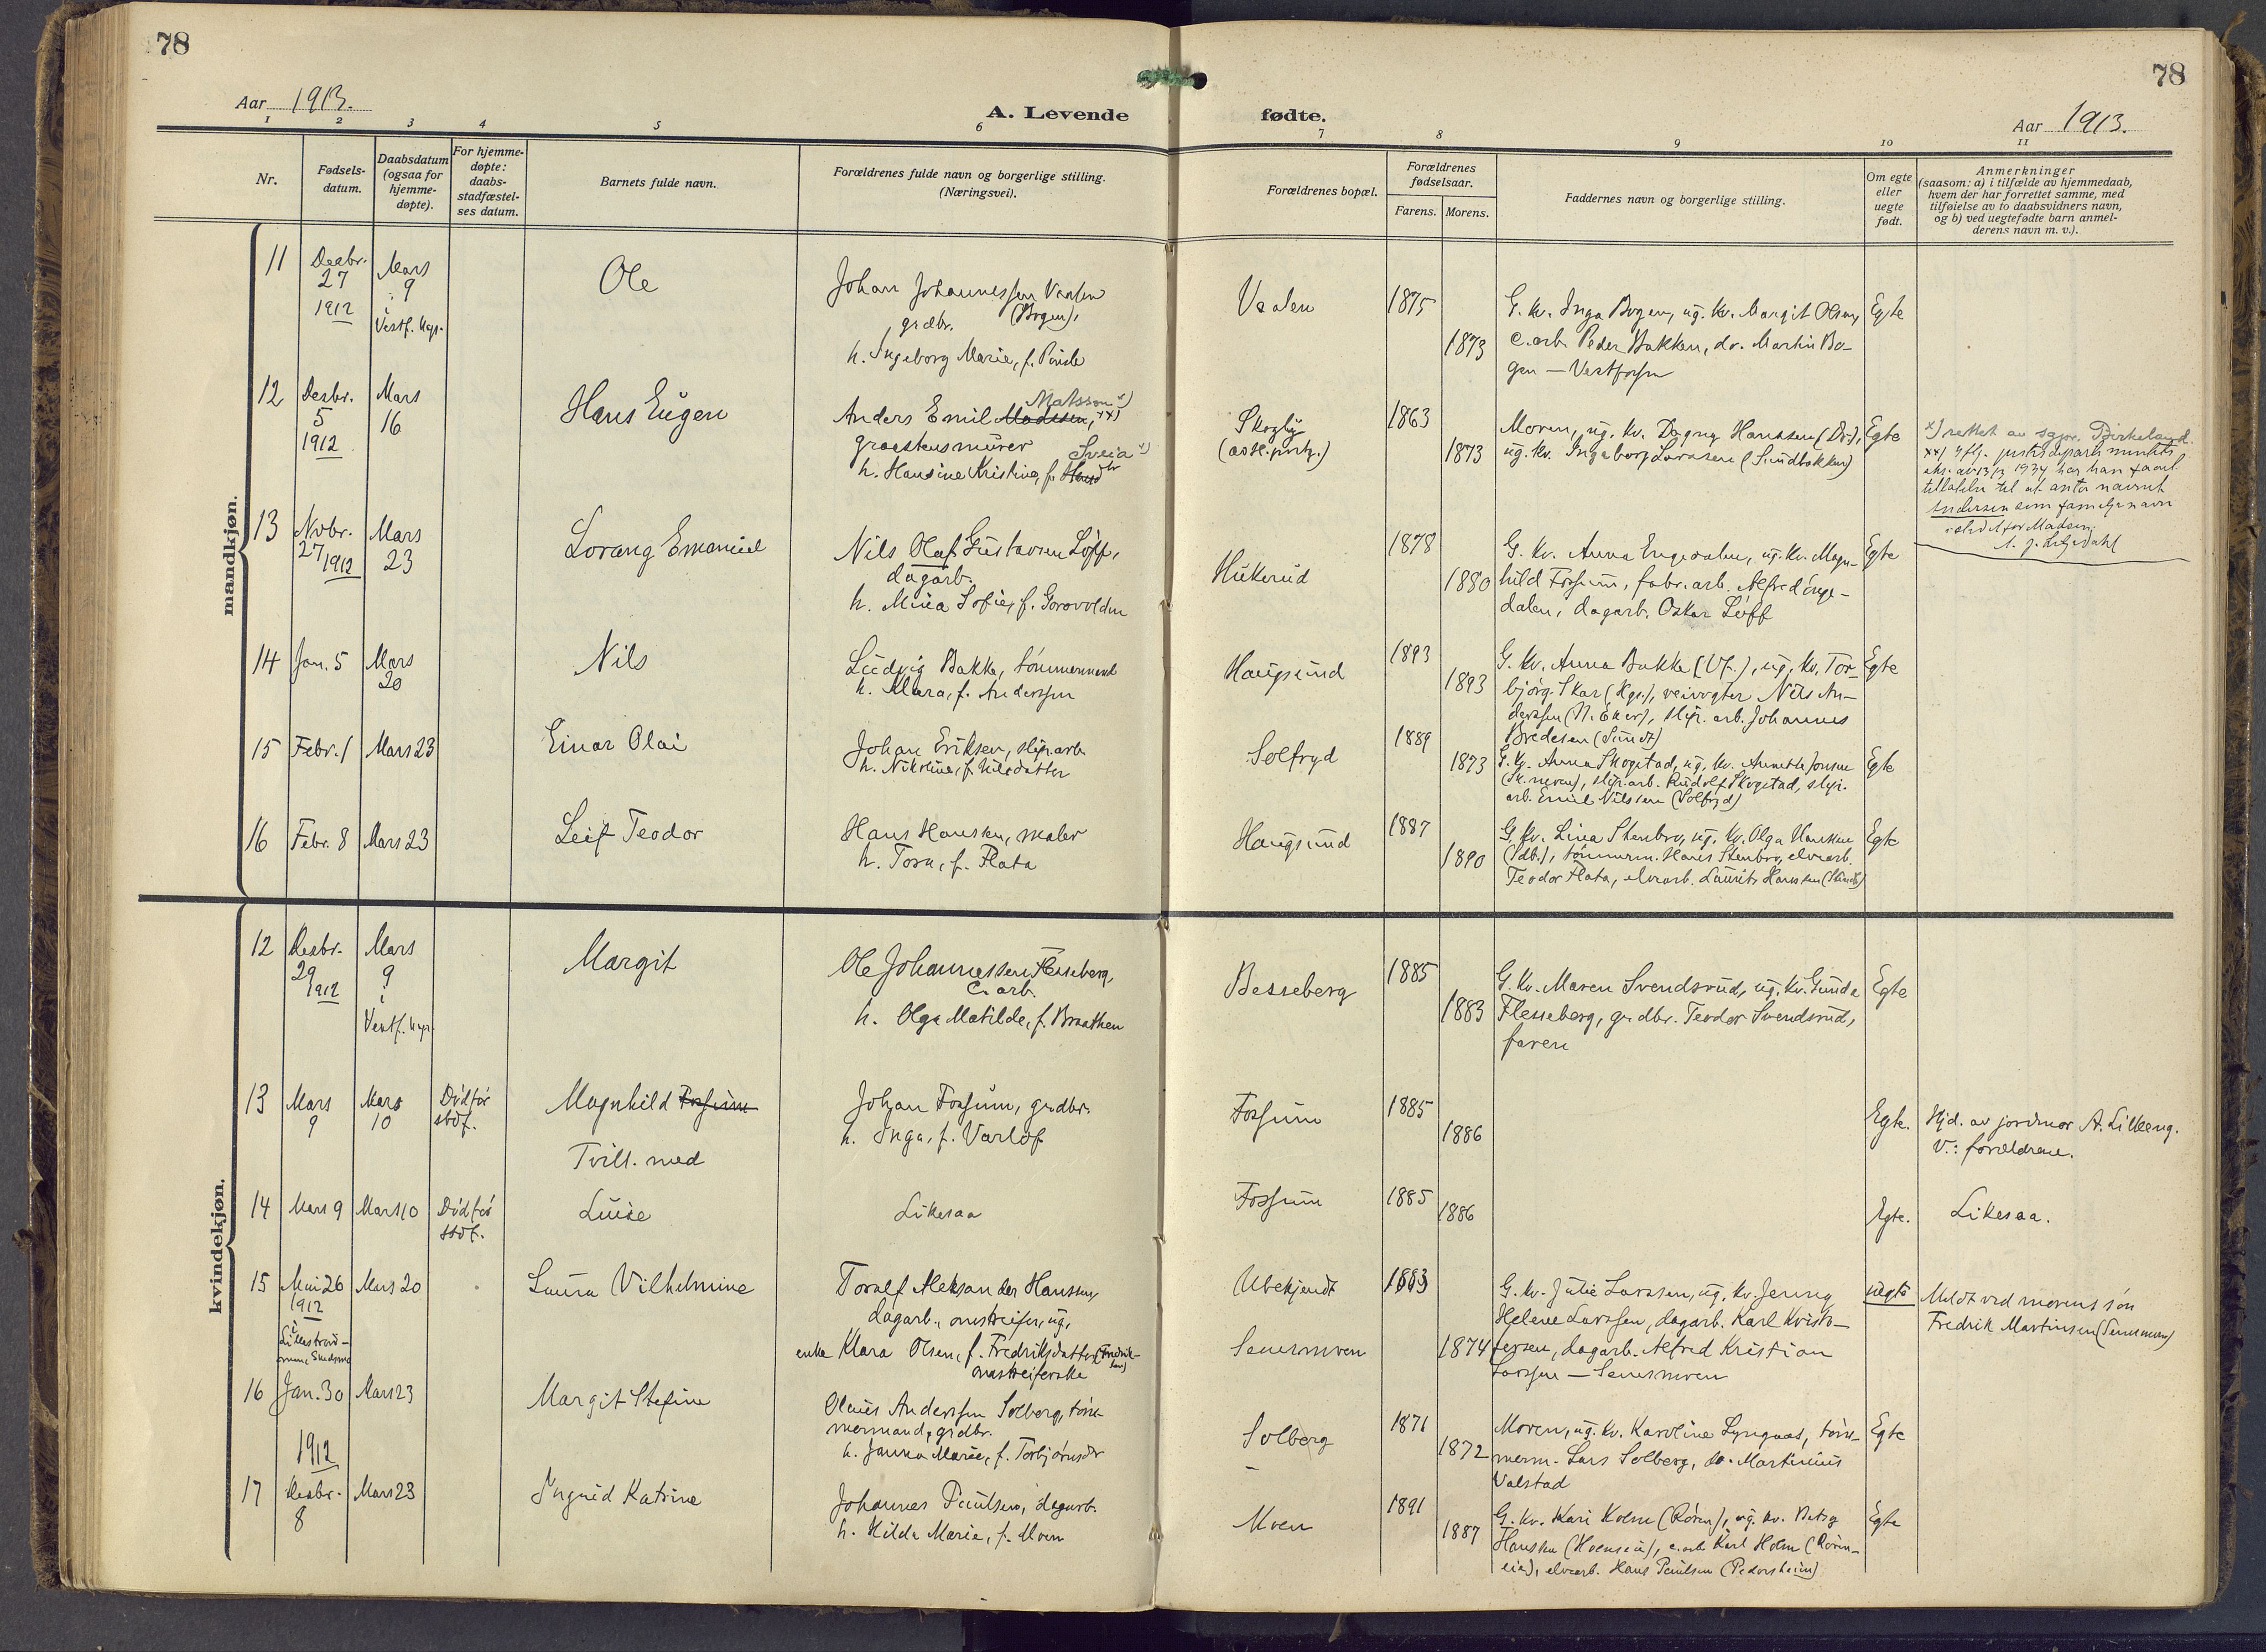 78
78
Aar 1913.
A. Levende fødte.
Aar 1913.
1 2 3 4 5 6 7 8 9 10 11
Nr.
Fødsels-
datum.
Daabsdatum
(ogsaa for
hjemme-
døpte).
For hjemme-
døpte:
daabs-
stadfæstel-
ses datum.
Barnets fulde navn.
Forældrenes fulde navn og borgerlige stilling.
(Næringsvei).
Forældrenes bopæl.
Forældrenes
fødselsaar.
Farens. Morens.
Faddernes navn og borgerlige stilling.
Om egte
eller
uegte
født.
Anmerkninger
(saasom: a) i tilfælde av hjemmedaab,
hvem der har forrettet samme, med
tilføielse av to daabsvidners navn,
og b) ved uegtefødte barn anmel-
derens navn m. v.).
mandkjøn.
11
Desbr.
27
1912
Mars
9
i
Vestf. kap.
Ole
Johan Johannessen Vaalen
grdbr. (Bogen),
h. Ingeborg Marie, f. Pinsle
Vaalen
1875
1873
G. kv. Inga Bogen, ug. kv. Margit Olsen,
c.arb. Peder Bakken, do. Martin Bo-
gen — Vestfossen
Egte
12
Desbr.
5
1912
Mars
16
Hans Eugen
Matsson x)
Anders Emil Madsen, xx)
graastensmurer
Svea x)
h. Hansine Kristine, f.
Skogly
1863
1873
Moren, ug. kv. Dagny Hanssen (Dr.),
ug. kv. Ingeborg Larssen (Sundbakken)
Egte
x) rettet av sgpr. Birkeland.
xx) ifflg. justisdepartementets
1934 har han faatt
tillatelse til at anta navnet
Andersen som familjenavn
istedetfor Madsen.
13
Novbr.
27 1912
Mars
23
Lorang Emanuel
Nils Olaf Gustavsen Løff,
dagarb.
h. Mina Sofie, f. Gorovolden
Hukerud
1878
1880
G. kv. Anna Engedalen, ug. kv. Magn-
hild Fossum, fabr. arb. Alfred Enge-
dalen, dagarb. Oskar Løff
Egte
14
Jan. 5
Mars
20
Nils
Ludvig Bakke, tømmermand
h. Klara, f. Anderssen
Haugsund
1893
1893
G. kv. Anna Bakke (Vf.), ug. kv. Tor-
bjørg Skar (Kgs.), veivogter Nils An-
derssen (N. Eker), slip. arb. Johannes
Bredesen (Sundt)
Egte
15
Febr. 1
Mars 23
Einar Olai
Johan Eriksen, slip.arb.
h. Nikoline, f. Nilsdatter
Solfryd
1889
1873
G. kv. Anna Skogstad, ug. kv. Annette Jonsen
slip.arb. Rudolf Skogstad, slip.
arb. Emil Nilssen (Solfryd)
Egte
16
Febr. 8
Mars 23
Leif Teodor
Hans Hanssen, maler
h. Tora, f. Flata
Haugsund
1887
1890
G. kv. Lina Stenbro, ug. kv. Olga Hanssen
(Sdb.), tømmerm. Hans Stenbro, elvearb.
Teodor Flata, elvearb. Laurits Hanssen
Egte
kvindekjøn.
12
Desbr.
29
1912
Mars
9
i
Vestf. kap.
Margit
Ole Johannessen Flesseberg,
c. arb.
h. Olga Matilde, f. Braathen
Besseberg
1885
1883
G. kv. Maren Svendsrud, ug. kv. Gunda
Flesseberg, grdbr. Teodor Svendsrud,
faren
Egte
13
Mars
9
Mars
10
Død før
stdf.
Magnhild Fossum
Tvill. med
Johan Fossum, grdbr.
h. Inga, f. Varlo
Fossum
1885
1886
Egte.
Hjd. av jordmor A. Lilleeng.
V.: forældrene.
14
Mars 9
Mars 10
Død før
stdf.
Luise
Likesaa
Fossum
1885
1886
Egte.
Likesaa.
15
Mai 26
1912
i
Mars 20
Laura Vilhelmine
Toralf Aleksander Hanssen,
dagarb., omstreifer, ug.
enke Klara Olsen, f. Fredriksdatter (Fredrik-
sen)
omstreiferske
Ubekjendt
Semsmoen
1883
1874
G. kv. Julie Larssen, ug. kv. Jenny
Helene Larssen, dagarb. Karl Kristo-
fersen, dagarb. Alfred Kristian
Larssen — Semsmoen
uegte
Meldt ved morens søn
Fredrik Martinsen (Semsmoen)
16
Jan. 30
Mars 23
Margit Stefine
Olaus Anderssen Solberg, tøm-
mermand, grdbr.
h. Janna Marie, f. Torbjørnsdr
Solberg
1871
1872
Moren, ug. kv. Karoline Lyngaas, tøm-
merm. Lars Solberg, do. Martinius
Valstad
Egte
17
1912
Desbr.
8
Mars 23
Ingrid Katrine
Johannes Paulsen, dagarb.
h. Hilda Marie, f. Moen
Moen
1891
1887
G. kv. Kari Holm (Røren), ug. kv. Betsy
Hanssen, c.arb. Karl Holm (Røren-
eie), elvearb. Hans Paulsen (Pedersheim)
Egte